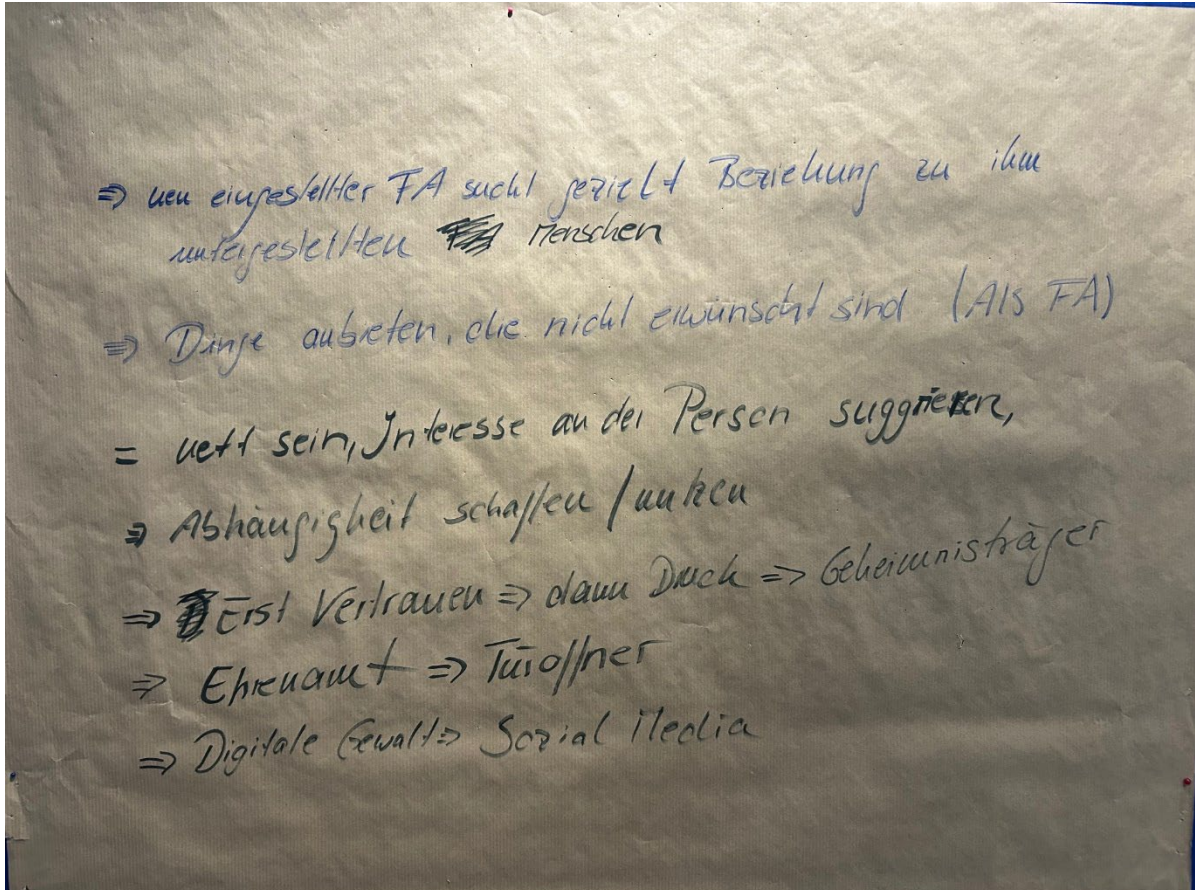 ⇒ neu eingestellter FA sucht gezielt Beziehung zu ihm
untergestellten Menschen
⇒ Dinge anbieten, die nicht erwünscht sind (Als FA)
= nett sein, Interesse an der Person suggrieren,
⇒ Abhängigkeit schaffen / nutzen
⇒ Erst Vertrauen ⇒ dann Druck ⇒ Geheimnisträger
⇒ Ehrenamt ⇒ Türöffner
⇒ Digitale Gewalt ⇒ Sozial Media